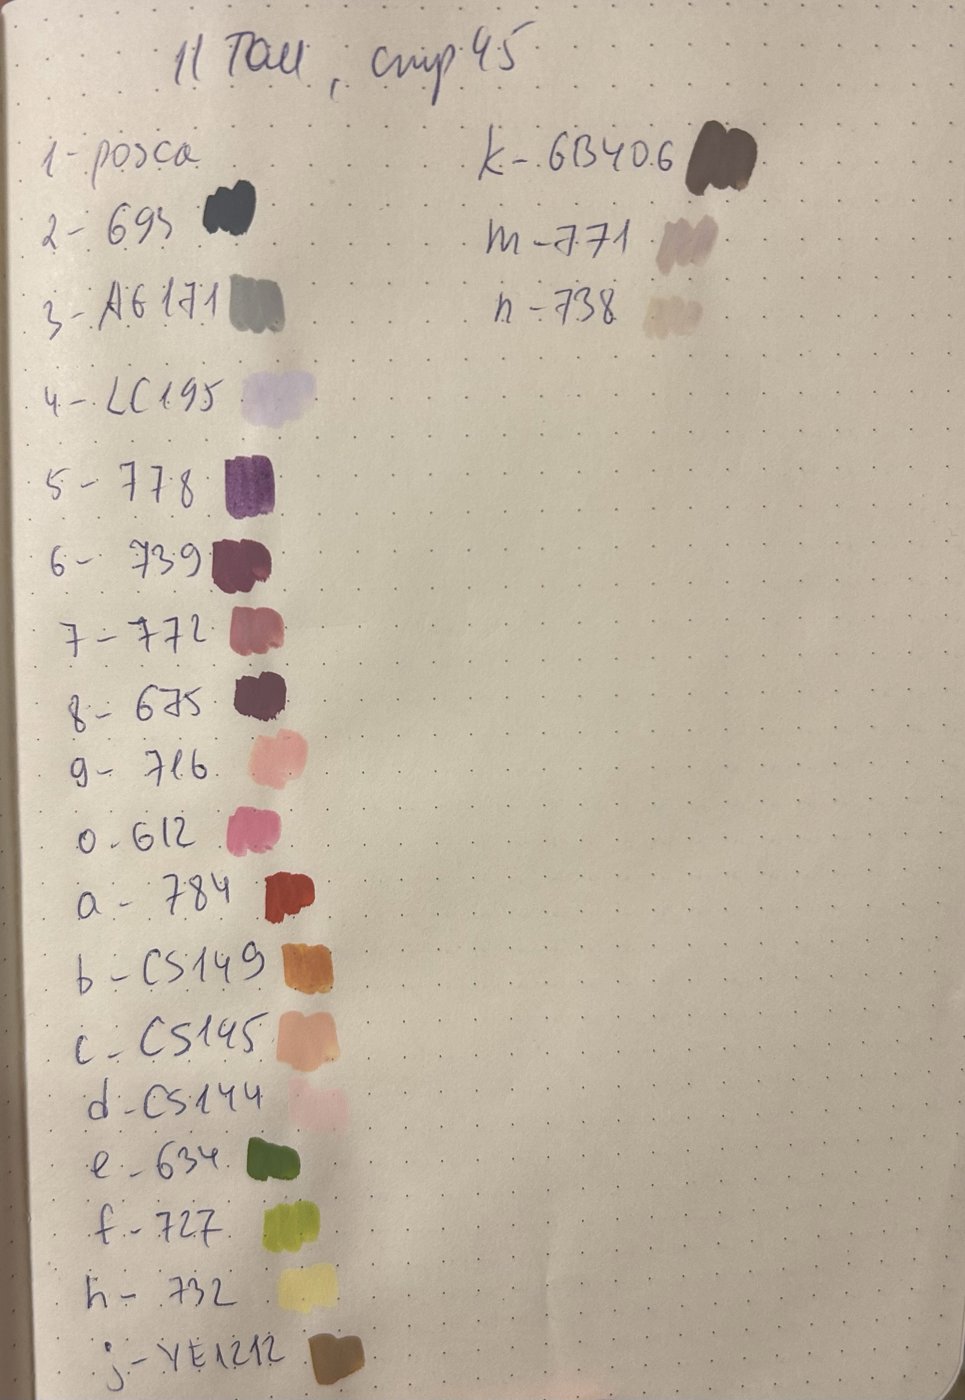 11 Том, стр 45
1 - posca
2 - 693
3 - AG 171
4 - LC195
5 - 778
6 - 739
7 - 772
8 - 675
9 - 716
0 - 612
a - 784
b - CS149
c - CS145
d - CS144
e - 634
f - 727
h - 732
j - YE1212
k - GB406
m - 771
n - 738